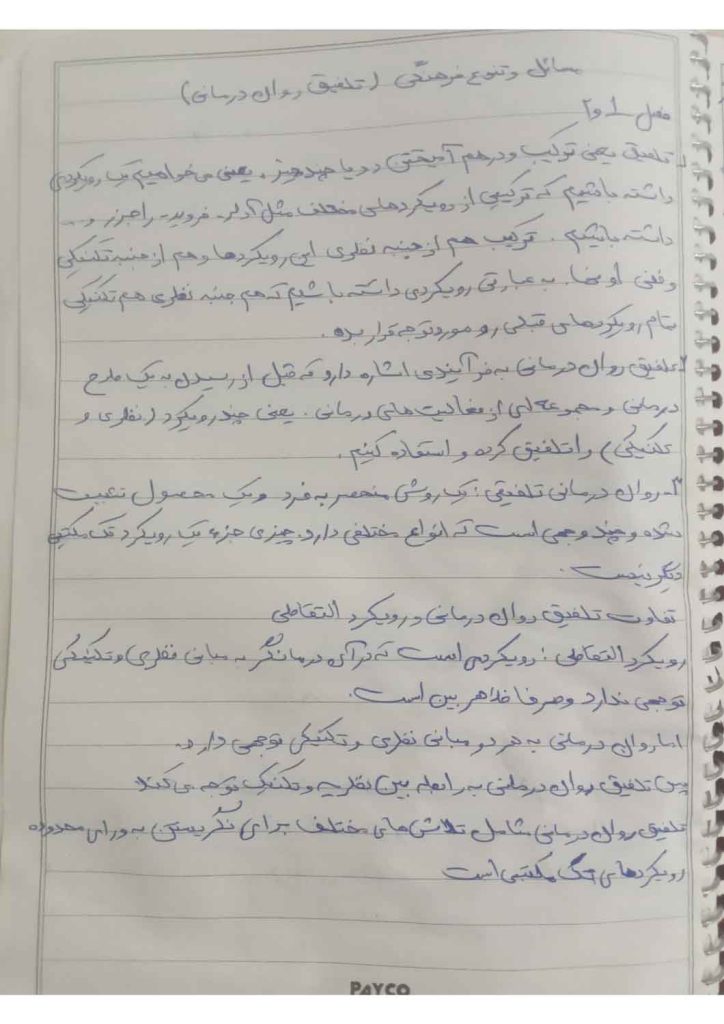 مسائل و تنوع فرهنگی (تلفیق روان درمانی)
فصل ۱ و ۲
۱- تلفیق یعنی ترکیب و درهم آمیختن دو یا چند چیز. یعنی می‌خواهیم یک رویکردی
داشته باشیم که ترکیبی از رویکردهای مختلف مثل آدلر- فروید- راجرز و ...
داشته باشیم. ترکیب هم از جنبه نظری این رویکردها و هم از جنبه تکنیکی
و فنی اونها. به عبارتی رویکردی داشته باشیم که هم جنبه نظری هم تکنیکی
تمام رویکردهای قبلی رو مورد توجه قرار بده.
۲- تلفیق روان درمانی به فرآیندی اشاره دارد که قبل از رسیدن به یک طرح
درمانی و مجموعه‌ای از فعالیت های درمانی. یعنی چند رویکرد (نظری و
تکنیکی) را تلفیق کرده و استفاده کنیم.
۳- روان درمانی تلفیقی: یک روش منحصر به فرد و یک محصول تثبیت
شده و چند وجهی است که انواع مختلفی دارد. چیزی جزء یک رویکرد تک مکتبی
دیگر نیست.
تفاوت تلفیق روان درمانی و رویکرد التقاطی
رویکرد التقاطی: رویکردی است که در آن درمانگر به مبانی نظری و تکنیکی
توجهی ندارد و صرفا ظاهر بین است.
اما روان درمانی به هر دو مبانی نظری و تکنیکی توجهی دارد.
پس تلفیق روان درمانی به رابطه بین نظریه و تکنیک توجه می کند
تلفیق روان درمانی شامل تلاش های مختلف برای نگریستن به ورای محدوده
رویکردهای تک مکتبی است
PAYCO